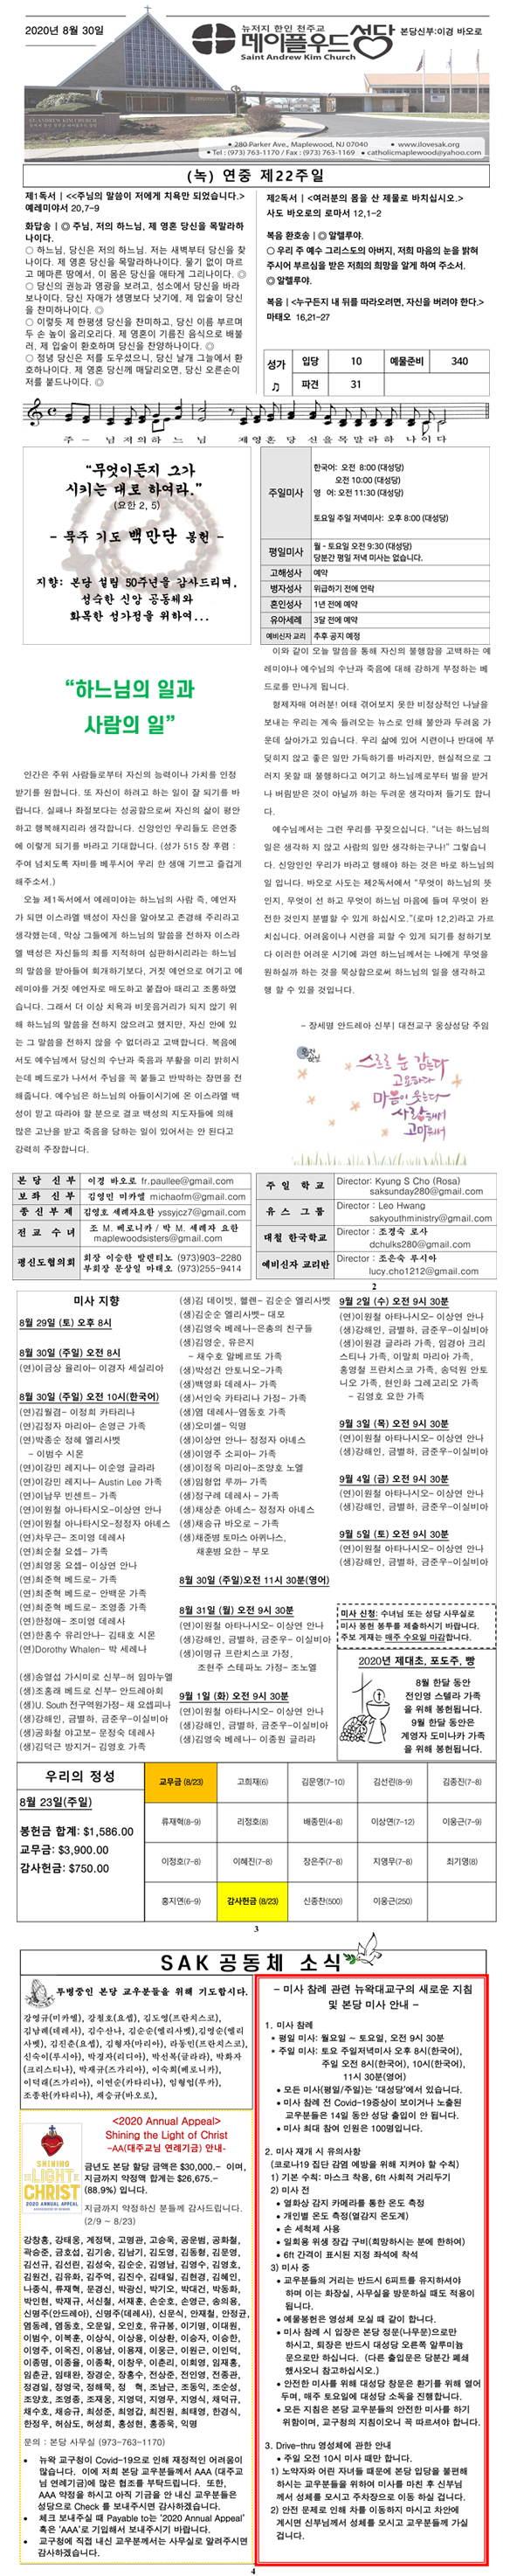 2020년 8월 30일
뉴저지 한인 천주교
메이플우드성당
Saint Andrew Kim Church
본당신부:이경 바오로
• 280 Parker Ave., Maplewood, NJ 07040 • www.ilovesak.org
• Tel : (973) 763-1170 / Fax : (973) 763-1169 • catholicmaplewood@yahoo.com
(녹) 연중 제22주일
제1독서 | <<주님의 말씀이 저에게 치욕만 되었습니다.>
예레미야서 20,7-9
화답송 | ◎ 주님, 저의 하느님, 제 영혼 당신을 목말라하
나이다.
○ 하느님, 당신은 저의 하느님. 저는 새벽부터 당신을 찾
나이다. 제 영혼 당신을 목말라하나이다. 물기 없이 마르
고 메마른 땅에서, 이 몸은 당신을 애타게 그리나이다. ◎
○ 당신의 권능과 영광을 보려고, 성소에서 당신을 바라
보나이다. 당신 자애가 생명보다 낫기에, 제 입술이 당신
을 찬미하나이다. ◎
○ 이렇듯 제 한평생 당신을 찬미하고, 당신 이름 부르며
두 손 높이 올리오리다. 제 영혼이 기름진 음식으로 배불
러, 제 입술이 환호하며 당신을 찬양하나이다. ◎
○ 정녕 당신은 저를 도우셨으니, 당신 날개 그늘에서 환
호하나이다. 제 영혼 당신께 매달리오면, 당신 오른손이
저를 붙드나이다. ◎
제2독서 | <여러분의 몸을 산 제물로 바치십시오.>
사도 바오로의 로마서 12,1-2
복음 환호송 | ◎ 알렐루야.
○ 우리 주 예수 그리스도의 아버지, 저희 마음의 눈을 밝혀
주시어 부르심을 받은 저희의 희망을 알게 하여 주소서.
◎ 알렐루야.
복음 | <누구든지 내 뒤를 따라오려면, 자신을 버려야 한다.>
마태오 16,21-27
성가 입당 10 예물준비 340
♫ 파견 31
주 - 님 저 의 하 느 님 제 영 혼 당 신 을 목 말 라 하 나 이 다
“무엇이든지 그가
시키는 대로 하여라.”
(요한 2, 5)
- 묵주 기도 백만단 봉헌 -
지향: 본당 설립 50주년을 감사드리며,
성숙한 신앙 공동체와
화목한 성가정을 위하여...
주일미사
한국어: 오전 8:00 (대성당)
오전 10:00 (대성당)
영 어: 오전 11:30 (대성당)
토요일 주일 저녁미사: 오후 8:00 (대성당)
평일미사 월 - 토요일 오전 9:30 (대성당)
당분간 평일 저녁 미사는 없습니다.
고해성사 예약
병자성사 위급하기 전에 연락
혼인성사 1년 전에 예약
유아세례 3달 전에 예약
예비신자 교리 추후 공지 예정
“하느님의 일과
사람의 일”
인간은 주위 사람들로부터 자신의 능력이나 가치를 인정
받기를 원합니다. 또 자신이 하려고 하는 일이 잘 되기를 바
랍니다. 실패나 좌절보다는 성공함으로써 자신의 삶이 평안
하고 행복해지리라 생각합니다. 신앙인인 우리들도 은연중
에 이렇게 되기를 바라고 기대합니다. (성가 515 장 후렴 :
주여 넘치도록 자비를 베푸시어 우리 한 생애 기쁘고 즐겁게
해주소서.)
오늘 제1독서에서 예레미야는 하느님의 사람 즉, 예언자
가 되면 이스라엘 백성이 자신을 알아보고 존경해 주리라고
생각했는데, 막상 그들에게 하느님의 말씀을 전하자 이스라
엘 백성은 자신들의 죄를 지적하며 심판하시리라는 하느님
의 말씀을 받아들여 회개하기보다, 거짓 예언으로 여기고 예
레미야를 거짓 예언자로 매도하고 붙잡아 때리고 조롱하였
습니다. 그래서 더 이상 치욕과 비웃음거리가 되지 않기 위
해 하느님의 말씀을 전하지 않으려고 했지만, 자신 안에 있
는 그 말씀을 전하지 않을 수 없더라고 고백합니다. 복음에
서도 예수님께서 당신의 수난과 죽음과 부활을 미리 밝히시
는데 베드로가 나서서 주님을 꼭 붙들고 반박하는 장면을 전
해줍니다. 예수님은 하느님의 아들이시기에 온 이스라엘 백
성이 믿고 따라야 할 분으로 결코 백성의 지도자들에 의해
많은 고난을 받고 죽음을 당하는 일이 있어서는 안 된다고
강력히 주장합니다.
이와 같이 오늘 말씀을 통해 자신의 불행함을 고백하는 예
레미야나 예수님의 수난과 죽음에 대해 강하게 부정하는 베
드로를 만나게 됩니다.
형제자매 여러분! 여태 겪어보지 못한 비정상적인 나날을
보내는 우리는 계속 들려오는 뉴스로 인해 불안과 두려움 가
운데 살아가고 있습니다. 우리 삶에 있어 시련이나 반대에 부
딪히지 않고 좋은 일만 가득하기를 바라지만, 현실적으로 그
러지 못할 때 불행하다고 여기고 하느님께로부터 벌을 받거
나 버림받은 것이 아닐까 하는 두려운 생각마저 들기도 합니
다.
예수님께서는 그런 우리를 꾸짖으십니다. “너는 하느님의
일은 생각하 지 않고 사람의 일만 생각하는구나!” 그렇습니
다. 신앙인인 우리가 바라고 행해야 하는 것은 바로 하느님의
일 입니다. 바오로 사도는 제2독서에서 “무엇이 하느님의 뜻
인지, 무엇이 선 하고 무엇이 하느님 마음에 들며 무엇이 완
전한 것인지 분별할 수 있게 하십시오.”(로마 12,2)라고 가르
치십니다. 어려움이나 시련을 피할 수 있게 되기를 청하기보
다 이러한 어려운 시기에 과연 하느님께서는 나에게 무엇을
원하실까 하는 것을 묵상함으로써 하느님의 일을 생각하고
행 할 수 있을 것입니다.
- 장세명 안드레아 신부| 대전교구 웅상성당 주임
스르르 눈 감는다
고요하다
마음이 웃는다
사랑해서
고마워서
본 당 신 부 이경 바오로 fr.paullee@gmail.com
보 좌 신 부 김영민 미카엘 michaofm@gmail.com
종 신 부 제 김영호 세례자요한 yssyjcz7@gmail.com
전 교 수 녀 조 M. 베로니카 / 박 M. 세레자 요한
maplewoodsisters@gmail.com
평신도협의회 회장 이승한 발렌티노 (973)903-2280
부회장 문상일 마태오 (973)255-9414
주 일 학 교 Director: Kyung S Cho (Rosa)
saksunday280@gmail.com
유 스 그 룹 Director : Leo Hwang
sakyouthministry@gmail.com
대철 한국학교 Director : 조경숙 로사
dchulks280@gmail.com
예비신자 교리반 Director : 조은숙 루시아
lucy.cho1212@gmail.com
2
미사 지향
8월 29일 (토) 오후 8시
8월 30일 (주일) 오전 8시
(연)이금상 율리아- 이경자 세실리아
8월 30일 (주일) 오전 10시(한국어)
(연)김월겸- 이정희 카타리나
(연)김정자 마리아- 손영근 가족
(연)박종순 정혜 엘리사벳
- 이범수 시몬
(연)이강민 레지나- 이순영 글라라
(연)이강민 레지나- Austin Lee 가족
(연)이남우 빈센트- 가족
(연)이원철 아나타시오-이상연 안나
(연)이원철 아나타시오-정정자 아네스
(연)차무근- 조미영 데레사
(연)최순철 요셉- 가족
(연)최영웅 요셉- 이상연 안나
(연)최준혁 베드로- 가족
(연)최준혁 베드로- 안백운 가족
(연)최준혁 베드로- 조영종 가족
(연)한정애- 조미영 데레사
(연)한홍수 유리안나- 김태호 시몬
(연)Dorothy Whalen- 박 세레나
(생)송영섭 가시미로 신부-허 임마누엘
(생)조홍래 베드로 신부- 안드레아회
(생)U. South 전구역원가정- 채 요셉피나
(생)강해인, 금별하, 금준우-이실비아
(생)공화철 야고보- 문정숙 데레사
(생)김덕근 방지거- 김영호 가족
(생)김 데이빗, 헬렌- 김순순 엘리사벳
(생)김순순 엘리사벳- 대모
(생)김영숙 베레나-은총의 친구들
(생)김영순, 유은지
- 채수호 알베르또 가족
(생)박성건 안토니오-가족
(생)백영화 데레사- 가족
(생)서인숙 카타리나 가정- 가족
(생)염 데레사-염동호 가족
(생)오미셸- 익명
(생)이상연 안나- 정정자 아네스
(생)이영주 소피아- 가족
(생)이정옥 마리아-조양호 노엘
(생)임형업 루까- 가족
(생)정구례 데레사 - 가족
(생)채상춘 아녜스- 정정자 아네스
(생)채승규 바오로 - 가족
(생)채준병 토마스 아퀴나스,
채훈병 요한 - 부모
8월 30일 (주일)오전 11시 30분(영어)
8월 31일 (월) 오전 9시 30분
(연)이원철 아타나시오- 이상연 안나
(생)강해인, 금별하, 금준우- 이실비아
(생)이명규 프란치스코 가정,
조현주 스테파노 가정- 조노엘
9월 1일 (화) 오전 9시 30분
(연)이원철 아타나시오- 이상연 안나
(생)강해인, 금별하, 금준우-이실비아
(생)김영숙 베레나- 이종원 글라라
9월 2일 (수) 오전 9시 30분
(연)이원철 아타나시오- 이상연 안나
(생)강해인, 금별하, 금준우-이실비아
(생)이원경 글라라 가족, 임경아 크리
스티나 가족, 이말희 마리아 가족,
홍영철 프란치스코 가족, 송덕원 안토
니오 가족, 현인화 그레고리오 가족
- 김영호 요한 가족
9월 3일 (목) 오전 9시 30분
(연)이원철 아타나시오- 이상연 안나
(생)강해인, 금별하, 금준우-이실비아
9월 4일 (금) 오전 9시 30분
(연)이원철 아타나시오- 이상연 안나
(생)강해인, 금별하, 금준우-이실비아
9월 5일 (토) 오전 9시 30분
(연)이원철 아타나시오- 이상연 안나
(생)강해인, 금별하, 금준우-이실비아
미사 신청: 수녀님 또는 성당 사무실로
미사 봉헌 봉투를 제출하시기 바랍니다.
주보 게재는 매주 수요일 마감합니다.
2020년 제대초, 포도주, 빵
8월 한달 동안
전인영 스텔라 가족
을 위해 봉헌됩니다.
9월 한달 동안은
계영자 도미나카 가족
을 위해 봉헌됩니다.
우리의 정성
8월 23일(주일)
봉헌금 합계: $1,586.00
교무금: $3,900.00
감사헌금: $750.00
교무금 (8/23) 고희재(6) 김운영(7-10) 김선린(8-9) 김종진(7-8)
류재혁(8-9) 리정호(8) 배종민(4-8) 이상연(7-12) 이웅근(7-9)
이정호(7-8) 이혜진(7-8) 장은주(7-8) 지영무(7-8) 최기영(8)
홍지연(6-9) 감사헌금 (8/23) 신종찬(500) 이웅근(250)
3
SAK 공동체 소식
투병중인 본당 교우분들을 위해 기도합시다.
강영규(미카엘), 강철호(요셉), 김도영(프란치스코),
김남례(데레사), 김수산나, 김순순(엘리사벳),김영순(엘리
사벳), 김진춘(요셉), 김형자(마리아), 라동민(프란치스코),
신숙이(루시아), 박경자(리디아), 박선복(글라라), 박화자
(크리스티나), 박재규(즈가리아), 이숙희(베로니카),
이덕래(즈가리아), 이연순(카타리나), 임형업(루카),
조종완(카타리나), 채승규(바오로),
SHINING
THE LIGHT OF
CHRIST
2020 ANNUAL APPEAL
<2020 Annual Appeal>
Shining the Light of Christ
-AA(대주교님 연례기금) 안내-
금년도 본당 할당 금액은 $30,000.- 이며,
지금까지 약정액 합계는 $26,675.-
(88.9%) 입니다.
지금까지 약정하신 분들께 감사드립니다.
(2/9 ~ 8/23)
강창홍, 강태웅, 계정택, 고명관, 고승욱, 공운범, 공화철,
곽승준, 금호섭, 김기송, 김남기, 김도영, 김동형, 김문영,
김선규, 김선린, 김성숙, 김순순, 김영남, 김영수, 김영호,
김원건, 김유화, 김주억, 김진수, 김태일, 김현경, 김혜인,
나종식, 류재혁, 문경신, 박광신, 박기오, 박대건, 박동화,
박인현, 박재규, 서신철, 서재훈, 손순호, 손영근, 송의용,
신명주(안드레아), 신명주(데레사), 신문식, 안재철, 안정균,
염동례, 염동호, 오문일, 오인호, 유규봉, 이기명, 이대원,
이범수, 이복훈, 이상식, 이상용, 이상환, 이승자, 이승한,
이영주, 이옥진, 이용남, 이용재, 이웅근, 이원근, 이인덕,
이종명, 이종율, 이종확, 이창우, 이춘리, 이희영, 임재홍,
임춘균, 임태완, 장경순, 장홍수, 전상준, 전인영, 전종관,
정경일, 정영국, 정해욱, 정 혁, 조남근, 조동익, 조순성,
조양호, 조영종, 조재웅, 지영덕, 지영무, 지영식, 채덕규,
채수호, 채승규, 최성준, 최영갑, 최진원, 최태영, 한경식,
한정우, 허상도, 허성희, 홍성현, 홍종욱, 익명
문의 : 본당 사무실 (973-763-1170)
• 뉴왁 교구청이 Covid-19으로 인해 재정적인 어려움이
많습니다. 이에 저희 본당 교우분들께서 AAA (대주교
님 연례기금)에 많은 협조를 부탁드립니다. 또한,
AAA 약정을 하시고 아직 기금을 안 내신 교우분들은
성당으로 Check 를 보내주시면 감사하겠습니다.
• 체크 보내주실 때 Payable to는 '2020 Annual Appeal'
혹은 'AAA'로 기입해서 보내주시기 바랍니다.
• 교구청에 직접 내신 교우분께서는 사무실로 알려주시면
감사하겠습니다.
- 미사 참례 관련 뉴왁대교구의 새로운 지침
및 본당 미사 안내 -
1. 미사 참례
• 평일 미사: 월요일 ~ 토요일, 오전 9시 30분
• 주일 미사: 토요 주일저녁미사 오후 8시(한국어),
주일 오전 8시(한국어), 10시(한국어),
11시 30분(영어)
• 모든 미사(평일/주일)는 '대성당'에서 있습니다.
• 미사 참례 전 Covid-19증상이 보이거나 노출된
교우분들은 14일 동안 성당 출입이 안 됩니다.
• 미사 최대 참여 인원은 100명입니다.
2. 미사 재개 시 유의사항
(코로나19 집단 감염 예방을 위해 지켜야 할 수칙)
1) 기본 수칙: 마스크 착용, 6ft 사회적 거리두기
2) 미사 전
• 열화상 감지 카메라를 통한 온도 측정
• 개인별 온도 측정(열감지 온도계)
• 손 세척제 사용
• 일회용 위생 장갑 구비(희망하시는 분에 한하여)
• 6ft 간격이 표시된 지정 좌석에 착석
3) 미사 중
• 교우분들의 거리는 반드시 6피트를 유지하셔야
하며 이는 화장실, 사무실을 방문하실 때도 적용이
됩니다.
• 예물봉헌은 영성체 모실 때 같이 합니다.
• 미사 참례 시 입장은 본당 정문(나무문)으로만
하시고, 퇴장은 반드시 대성당 오른쪽 알루미늄
문으로만 하십니다. (다른 출입문은 당분간 폐쇄
했사오니 참고하십시오.)
• 안전한 미사를 위해 대성당 창문은 환기를 위해 열어
두며, 매주 토요일에 대성당 소독을 진행합니다.
• 모든 지침은 본당 교우분들의 안전한 미사를 하기
위함이며, 교구청의 지침이오니 꼭 따르셔야 합니다.
3. Drive-thru 영성체에 관한 안내
• 주일 오전 10시 미사 때만 합니다.
1) 노약자와 어린 자녀들 때문에 본당 입당을 불편해
하시는 교우분들을 위하여 미사를 마친 후 신부님
께서 성체를 모시고 주차장으로 이동 하실 겁니다.
2) 안전 문제로 인해 차를 이동하지 마시고 차안에
계시면 신부님께서 성체를 모시고 교우분들께 가실
겁니다.
4